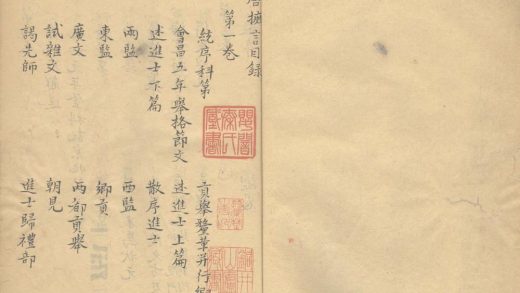 摭言目錄
第一卷
統序科第 貢舉釐革并行鄉
會昌五年舉格節文 述進士上篇
述進士下篇 散序進士
兩監 西監
東監 鄉貢
廣文 兩都貢舉
試雜文 朝見
謁先師 進士歸禮部